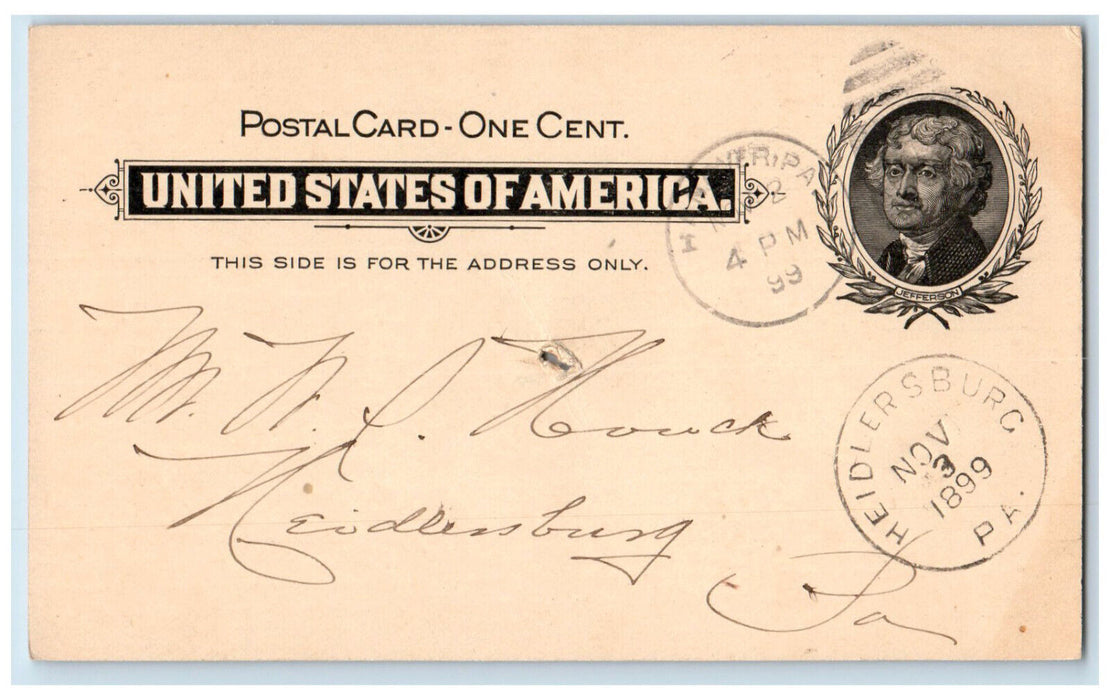 POSTAL CARD - ONE CENT.
UNITED STATES OF AMERICA.
THIS SIDE IS FOR THE ADDRESS ONLY.
PA
2
4 PM
99
JEFFERSON
Mr. H. S. Houck
Heidlersburg
Pa
HEIDLERSBURG
NOV
3
1899
PA.